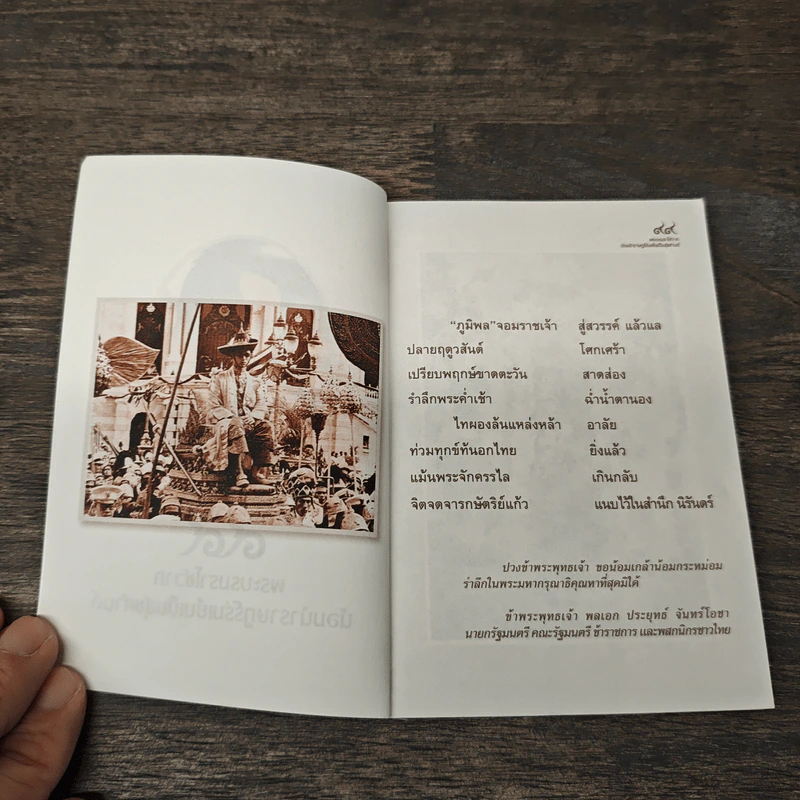 ๙๙
พระบรมราโชวาท
น้อมนำราษฎร์ร่มเย็นเป็นสุขศานติ์
“ภูมิพล”จอมราชเจ้า สู่สวรรค์ แล้วแล
ปลายฤดูวสันต์ โศกเศร้า
เปรียบพฤกษ์ขาดตะวัน สาดส่อง
รำลึกพระค่ำเช้า ฉ่ำน้ำตานอง
ไทผองล้นแหล่งหล้า อาลัย
ท่วมทุกข์ท้นอกไทย ยิ่งแล้ว
แม้นพระจักครรไล เกินกลับ
จิตจดจารกษัตริย์แก้ว แนบไว้ในสำนึก นิรันดร์
ปวงข้าพระพุทธเจ้า ขอน้อมเกล้าน้อมกระหม่อม
รำลึกในพระมหากรุณาธิคุณหาที่สุดมิได้
ข้าพระพุทธเจ้า พลเอก ประยุทธ์ จันทร์โอชา
นายกรัฐมนตรี คณะรัฐมนตรี ข้าราชการ และพสกนิกรชาวไทย